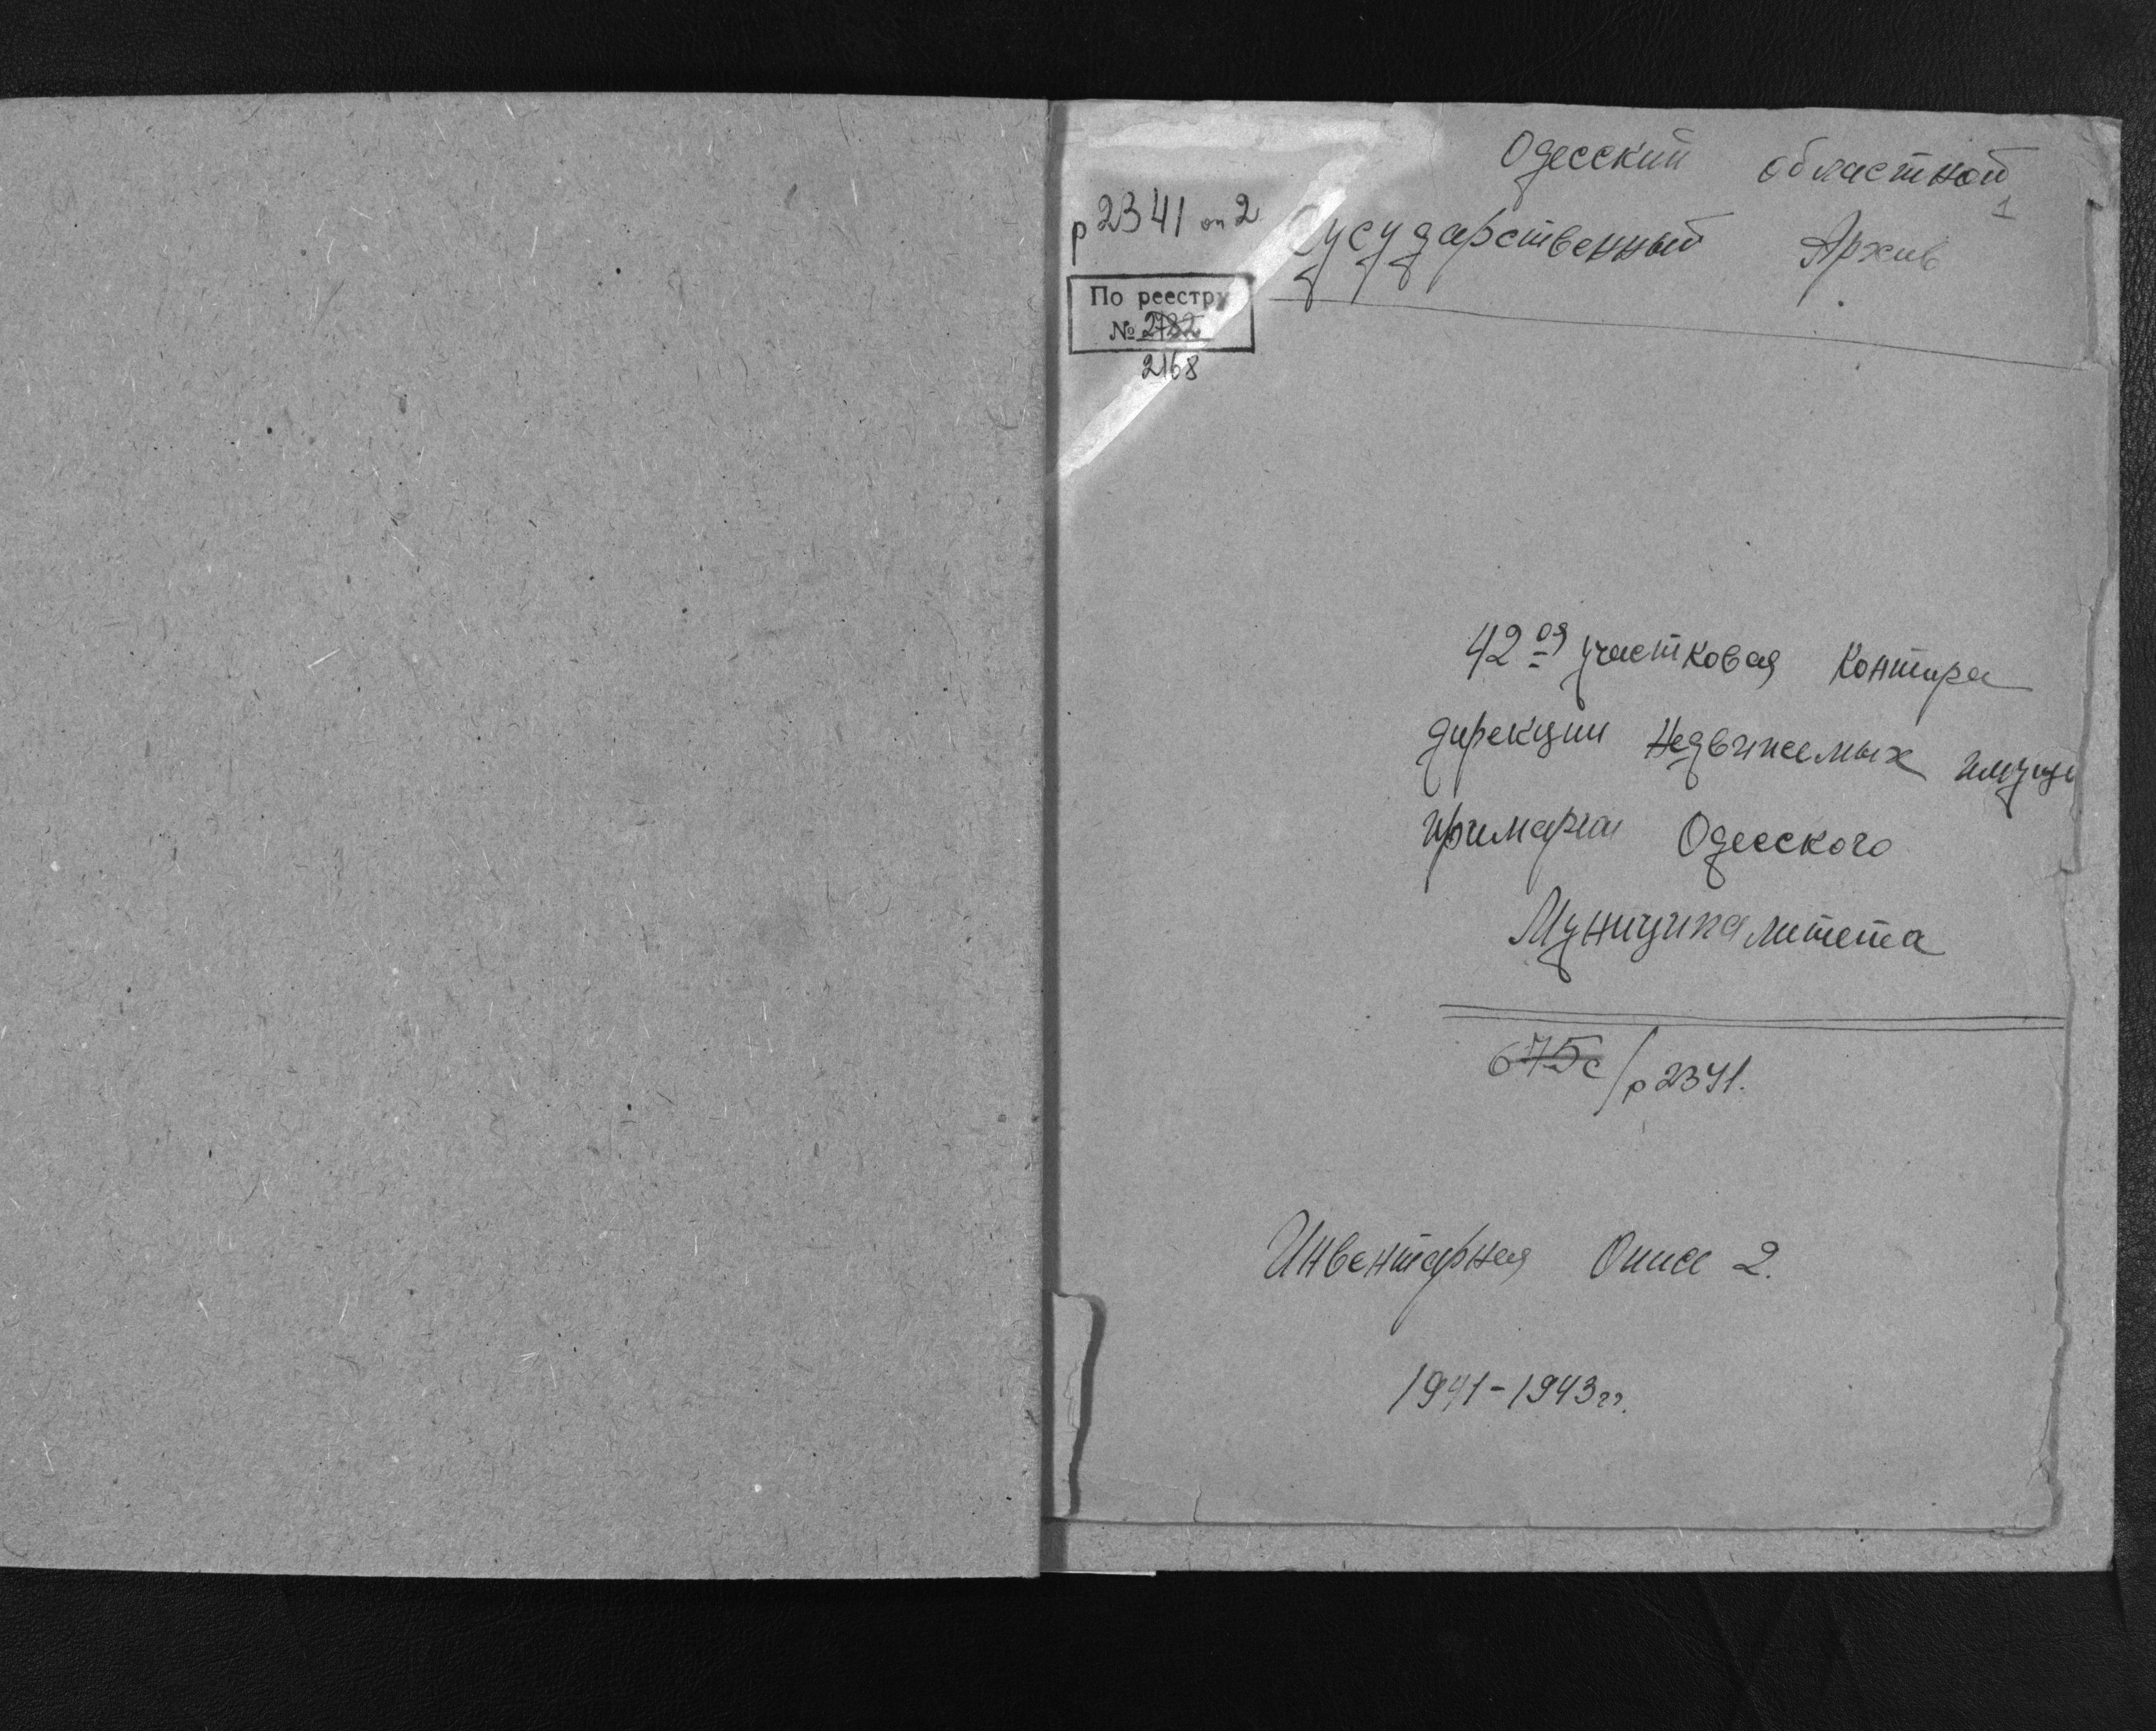 Одесский областной
1
р 2341 оп 2
Гусударственный Архив
По реестру
№ 2782
2168
42 ая участковая контора
дирекции недвижемых имущ
примарии Одесского
Муниципалитета
675с/р 2341.
Инвентарная Опись 2.
1941-1943 гг.